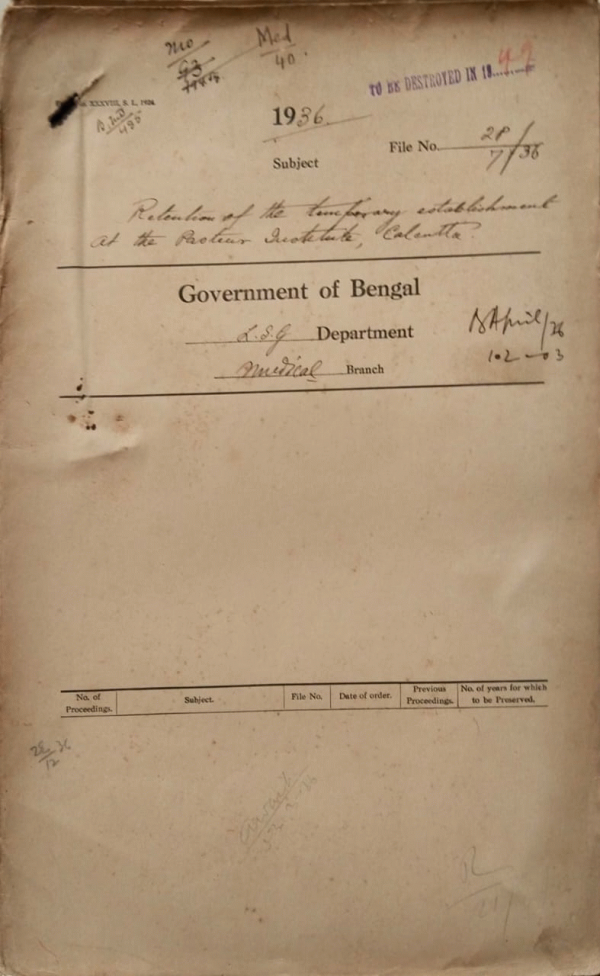 Med
40
TO BE DESTROYED IN 19
XXXVIII, S. L. 1936.
1936
File No. 28/7/36
Subject
Retention of the temporary establishment
at the Pasteur Institute, Calcutta.
Government of Bengal
L.S.G Department
Medical Branch
B April/36
102-03
No. of Proceedings.
Subject.
File No.
Date of order.
Previous Proceedings.
No. of years for which to be Preserved.